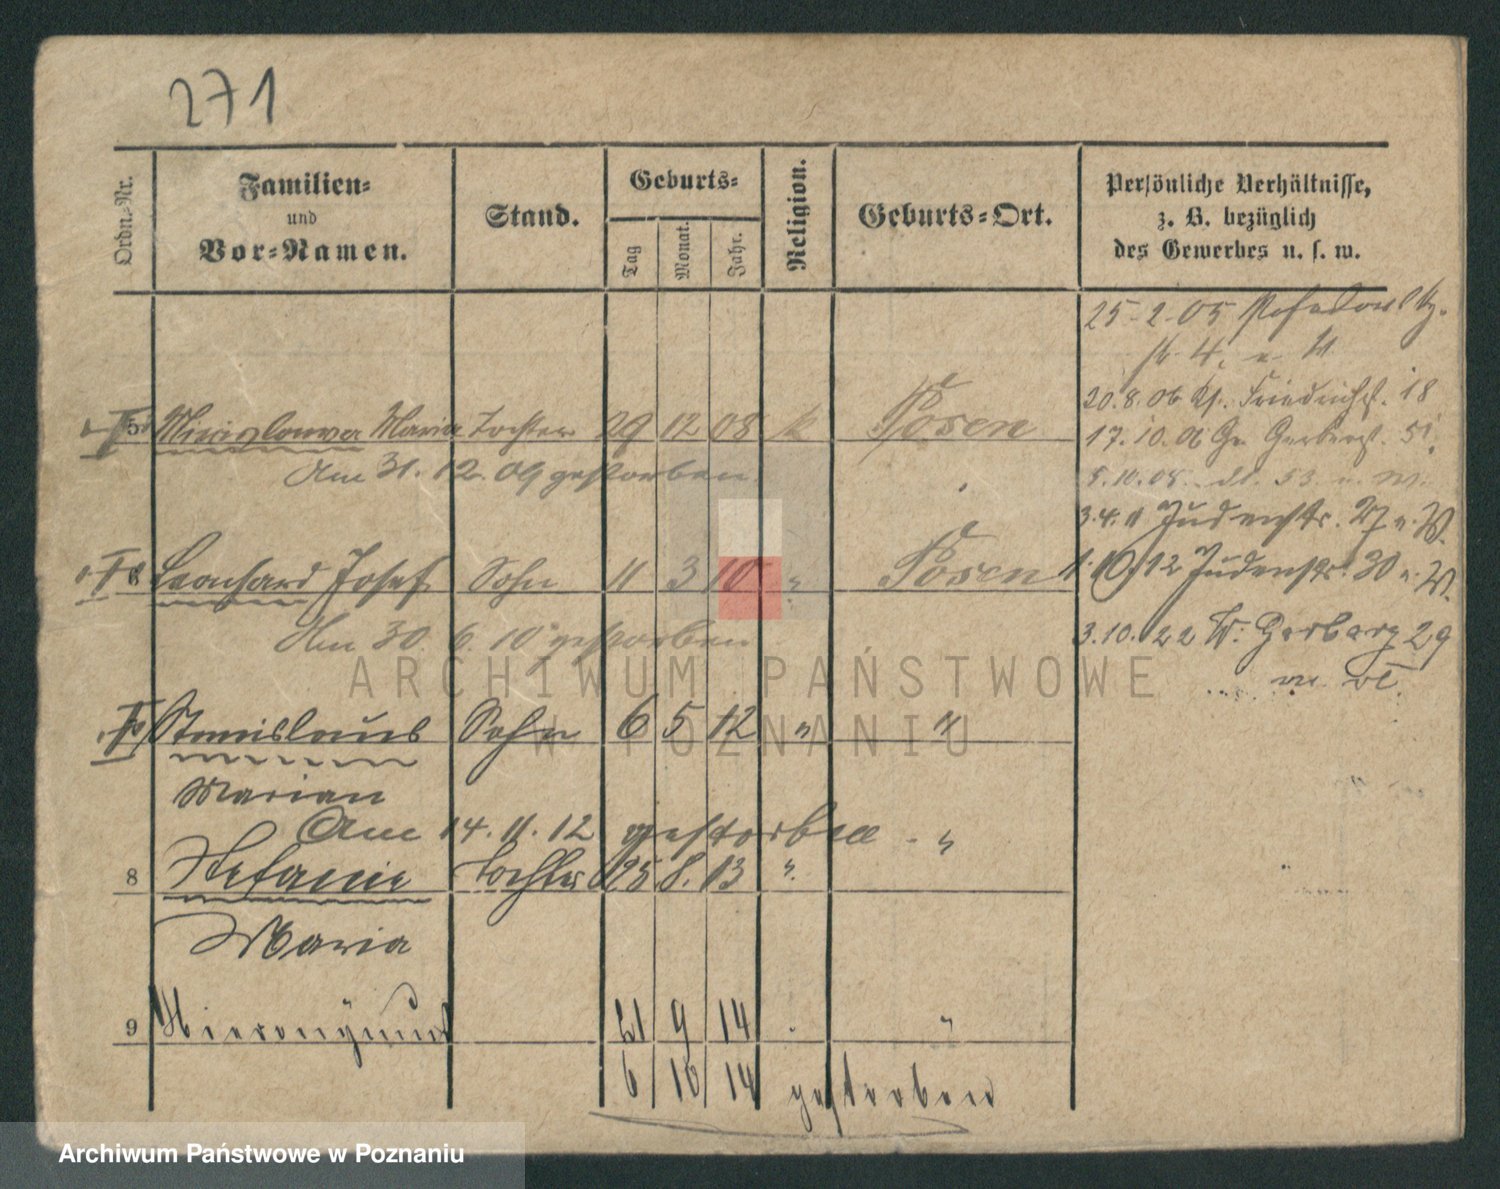 271
Ordn.-Nr.
Familien-
und
Vor-Namen.
Stand.
Geburts-
Tag
Monat.
Jahr.
Religion.
Geburts-Ort.
Persönliche Verhältnisse,
z. B. bezüglich
des Gewerbes u. s. w.
25-2-05
20.8.06 Kl. Friedrichst. 18
17.10.06 Gr. Gerberst. 51.
5 Maria Tochter 29 12 08 k Posen
Am 31.12.09 gestorben.
3.4.11 Judenstr. 27 v. W.
6 Leonhard Josef Sohn 11 3 10 " Posen
1.10.12 Judenstr. 30 v. W.
Am 30. 6. 10 gestorben
3.10.22 W. Gerberg 29
ARCHIWUM PAŃSTWOWE
W POZNANIU
Stanislaus Sohn 6 5 12 " "
Marian
Am 14.11.12 gestorben
8 Stefanie Tochter 25 8. 13 " "
Maria
9 Hieronÿmus 21 9 14 "
6 10 14 gestorben
Archiwum Państwowe w Poznaniu